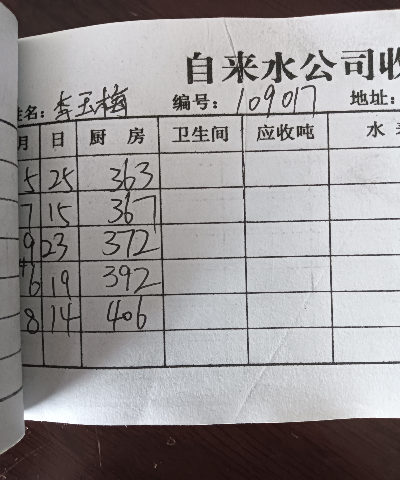 自来水公司收
姓名: 李玉梅 编号: 109017 地址:
月 日 厨房 卫生间 应收吨 水
5 25 363
7 15 367
9 23 372
6 19 392
8 14 406